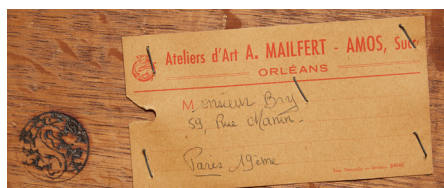 Ateliers d'Art A. MAILFERT - AMOS, Succ
ORLÉANS
Monsieur Bry
59, Rue Manin.
Paris 19ème